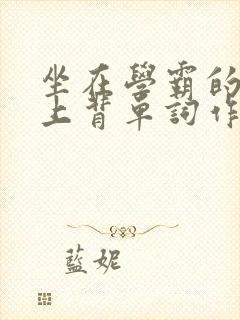 坐在學霸的
上背單詞作
藍妮